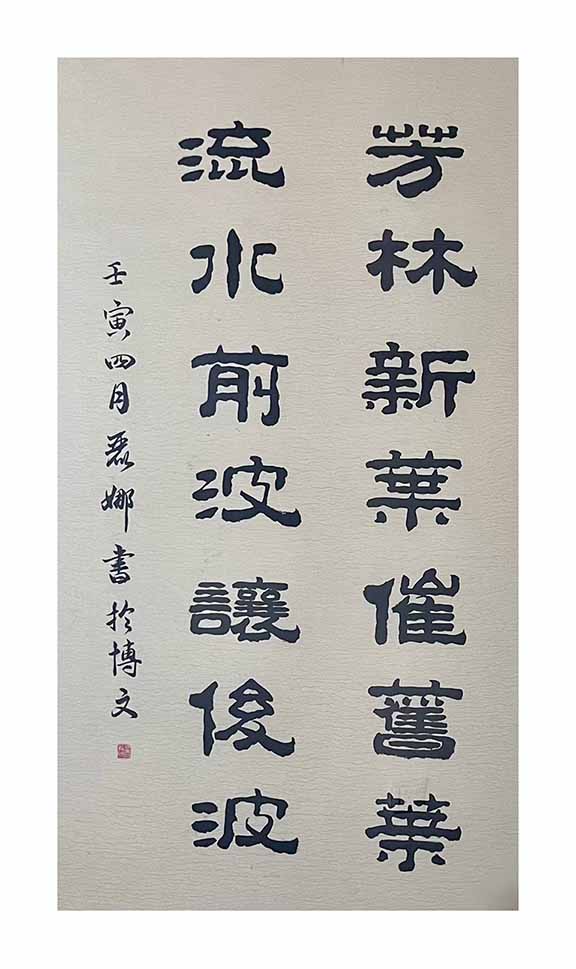 芳林新葉催舊葉
流水前波讓後波
壬寅四月麗娜書於博文